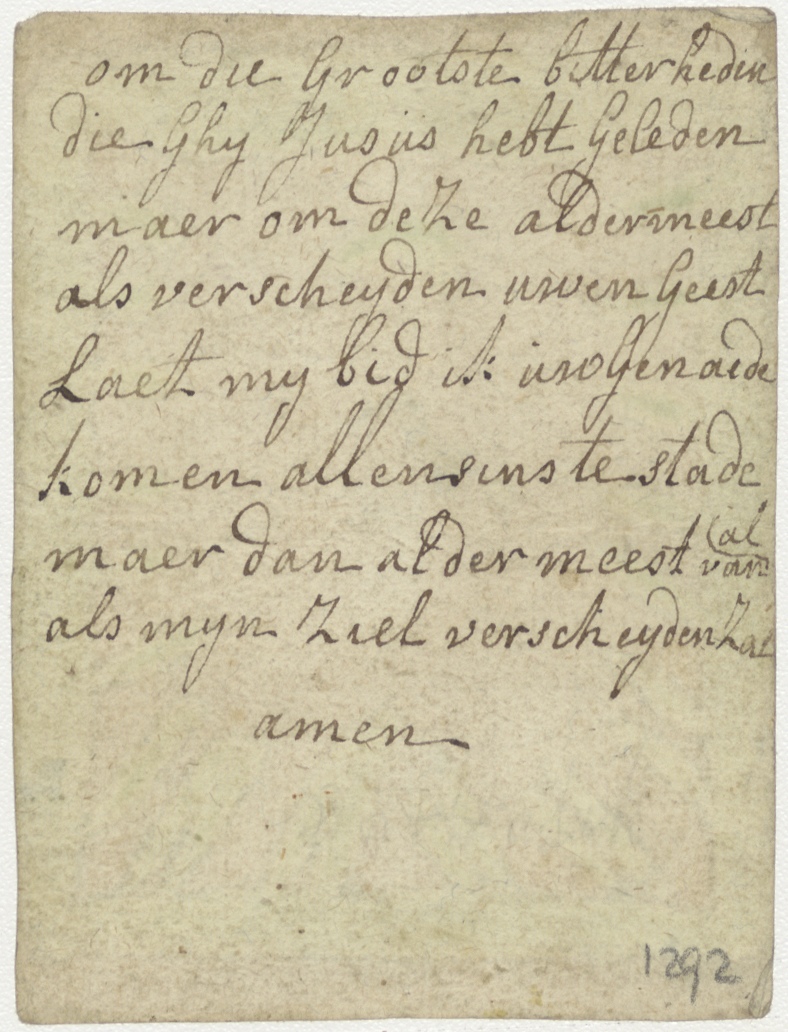 om die Grootste bitterheden
die Ghy Jusüs hebt Geleden
maer om deze aldermeest
als verscheyden uwen Geest
Laet my bid ik üw Genaede
komen allensins te stade
maer dan alder meest van (al
als myn Ziel verscheyden Zal
amen
1292